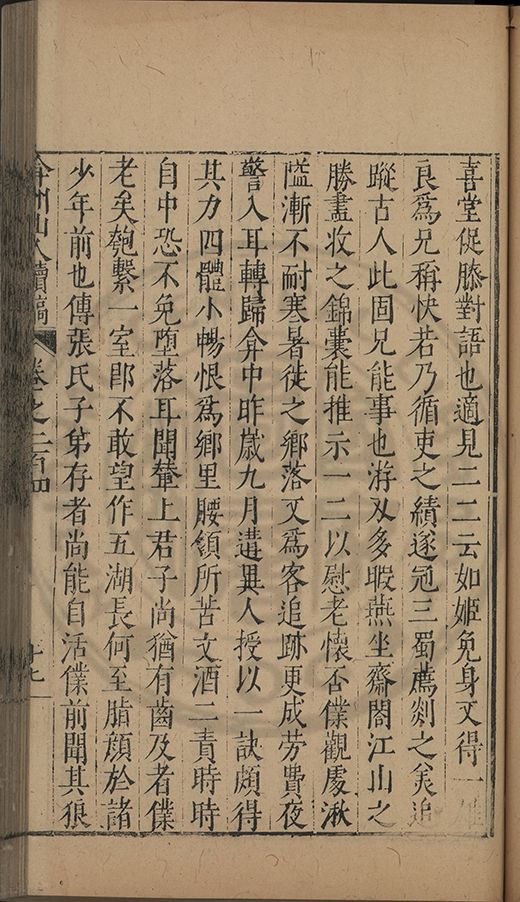 喜堂促膝對語也適見二二云如姬免身又得一雄
良爲兄稱快若乃循吏之績遂冠三蜀薦剡之美追
蹤古人此固兄能事也游刄多暇燕坐齋閣江山之
勝盡收之錦囊能推示一二以慰老懷否僕觀處湫
隘漸不耐寒暑徙之鄉落又爲客追跡更成勞費夜
警入耳轉歸弇中昨歲九月遘異人授以一訣頗得
其力四體小暢恨爲鄉里腰領所苦文酒二責時時
自中恐不免墮落耳聞輦上君子尚猶有齒及者僕
老矣匏繫一室卽不敢望作五湖長何至脂顔於諸
少年前也傳張氏子弟存者尚能自活僕前聞其狼
弇州山人續稿
卷之二百四
十七